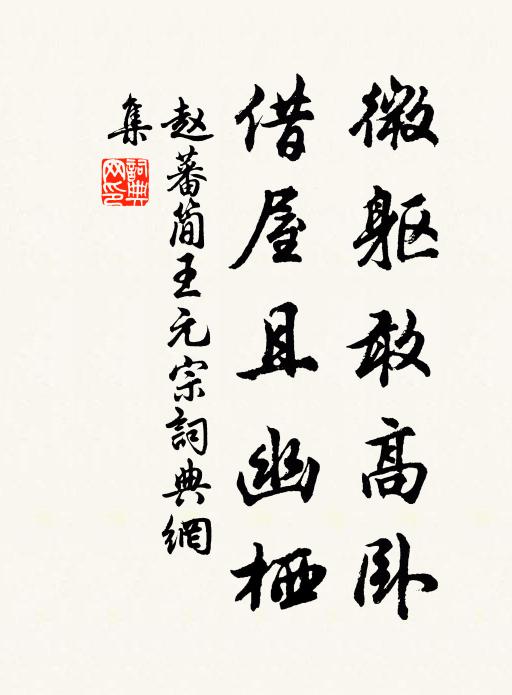 微躯敢高卧
借屋且幽栖
赵蕃简王元宗詞典網
集
詞典网印